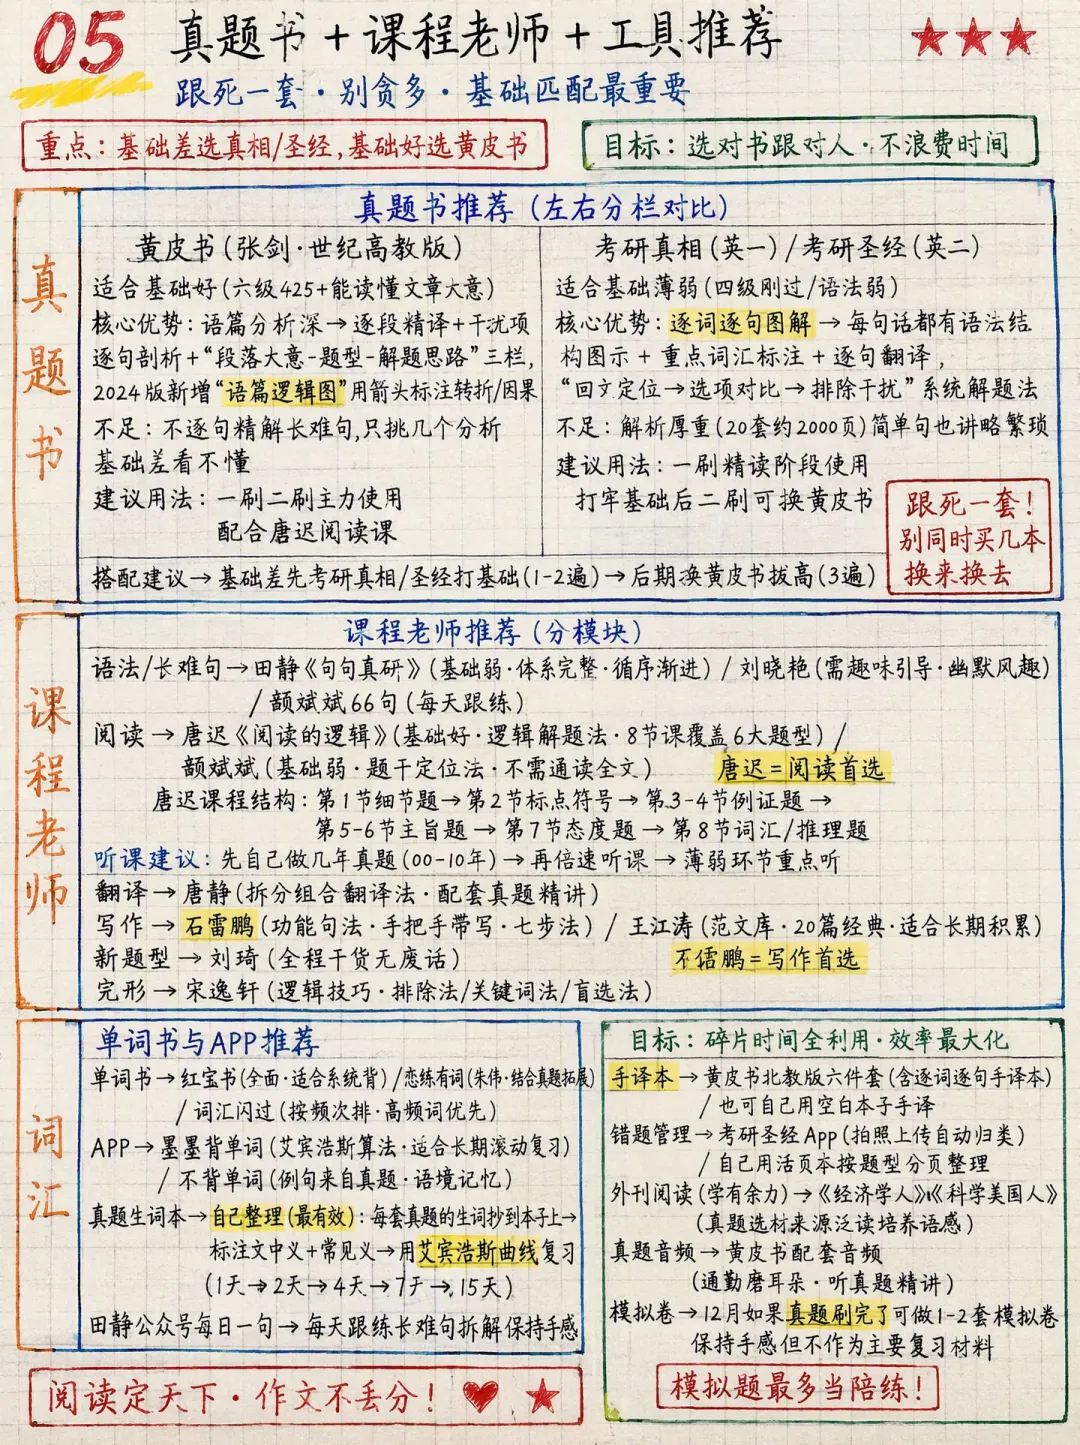 05 真题书+课程老师+工具推荐
跟死一套·别贪多·基础匹配最重要
重点：基础差选真相/圣经,基础好选黄皮书
目标：选对书跟对人·不浪费时间
真题书
真题书推荐（左右分栏对比）
黄皮书（张剑·世纪高教版）
适合基础好（六级425+能读懂文章大意）
核心优势：语篇分析深→逐段精译+干扰项
逐句剖析+“段落大意-题型-解题思路”三栏,
2024版新增“语篇逻辑图”用箭头标注转折/因果
不足：不逐句精解长难句,只挑几个分析
基础差看不懂
建议用法：一刷二刷主力使用
配合唐迟阅读课
考研真相（英一）/考研圣经（英二）
适合基础薄弱（四级刚过/语法弱）
核心优势：逐词逐句图解→每句话都有语法结
构图示+重点词汇标注+逐句翻译,
“回文定位→选项对比→排除干扰”系统解题法
不足：解析厚重（20套约2000页）简单句也讲略繁琐
建议用法：一刷精读阶段使用
打牢基础后二刷可换黄皮书
跟死一套！
别同时买几本
换来换去
搭配建议→基础差先考研真相/圣经打基础（1-2遍）→后期换黄皮书拔高（3遍）
课程老师
课程老师推荐（分模块）
语法/长难句→田静《句句真研》（基础弱·体系完整·循序渐进）/刘晓艳（需趣味引导·幽默风趣）
/颉斌斌66句（每天跟练）
阅读→唐迟《阅读的逻辑》（基础好·逻辑解题法·8节课覆盖6大题型）/
颉斌斌（基础弱·题干定位法·不需通读全文）
唐迟=阅读首选
唐迟课程结构：第1节细节题→第2节标点符号→第3-4节例证题→
第5-6节主旨题→第7节态度题→第8节词汇/推理题
听课建议：先自己做几年真题（00-10年）→再倍速听课→薄弱环节重点听
翻译→唐静（拆分组合翻译法·配套真题精讲）
写作→石雷鹏（功能句法·手把手带写·七步法）/王江涛（范文库·20篇经典·适合长期积累）
新题型→刘琦（全程干货无废话）
鹏=写作首选
完形→宋逸轩（逻辑技巧·排除法/关键词法/盲选法）
词汇
单词书与APP推荐
单词书→红宝书（全面·适合系统背）/恋练有词（朱伟·结合真题拓展）
/词汇闪过（按频次排·高频词优先）
APP→墨墨背单词（艾宾浩斯算法·适合长期滚动复习）
/不背单词（例句来自真题·语境记忆）
真题生词本→自己整理（最有效）：每套真题的生词抄到本子上→
标注文中义+常见义→用艾宾浩斯曲线复习
（1天→2天→4天→7天→15天）
田静公众号每日一句→每天跟练长难句拆解保持手感
阅读定天下·作文不丢分！
目标：碎片时间全利用·效率最大化
手译本→黄皮书北教版六件套（含逐词逐句手译本）
/也可自己用空白本子手译
错题管理→考研圣经App（拍照上传自动归类）
/自己用活页本按题型分页整理
外刊阅读（学有余力）→《经济学人》《科学美国人》
（真题选材来源泛读培养语感）
真题音频→黄皮书配套音频
（通勤磨耳朵·听真题精讲）
模拟卷→12月如果真题刷完了可做1-2套模拟卷
保持手感但不作为主要复习材料
模拟题最多当陪练！